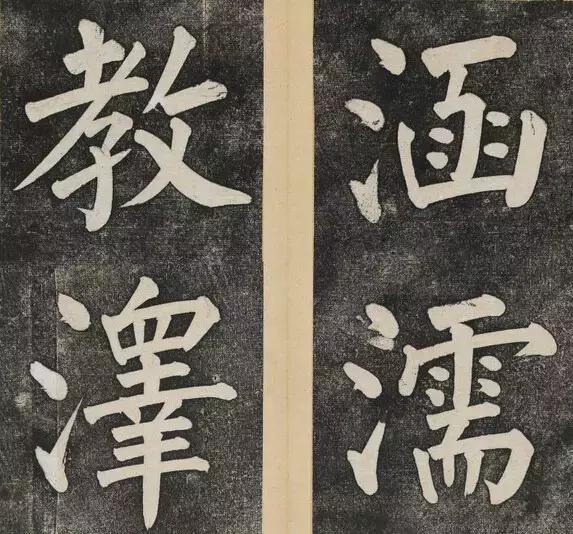 涵濡
教澤